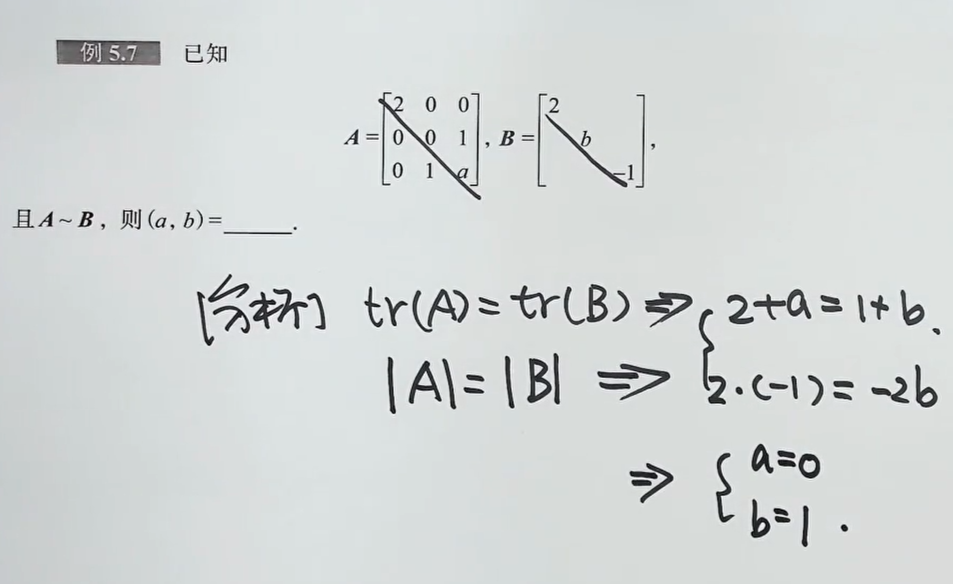 例 5.7 已知
A = [2 0 0; 0 0 1; 0 1 a], B = [2; b; -1],
且 A ~ B , 则 (a, b) = ______.
[分析] tr(A) = tr(B) ⇒ { 2+a = 1+b.
|A| = |B| ⇒ { 2·(-1) = -2b
⇒ { a=0
b=1 .